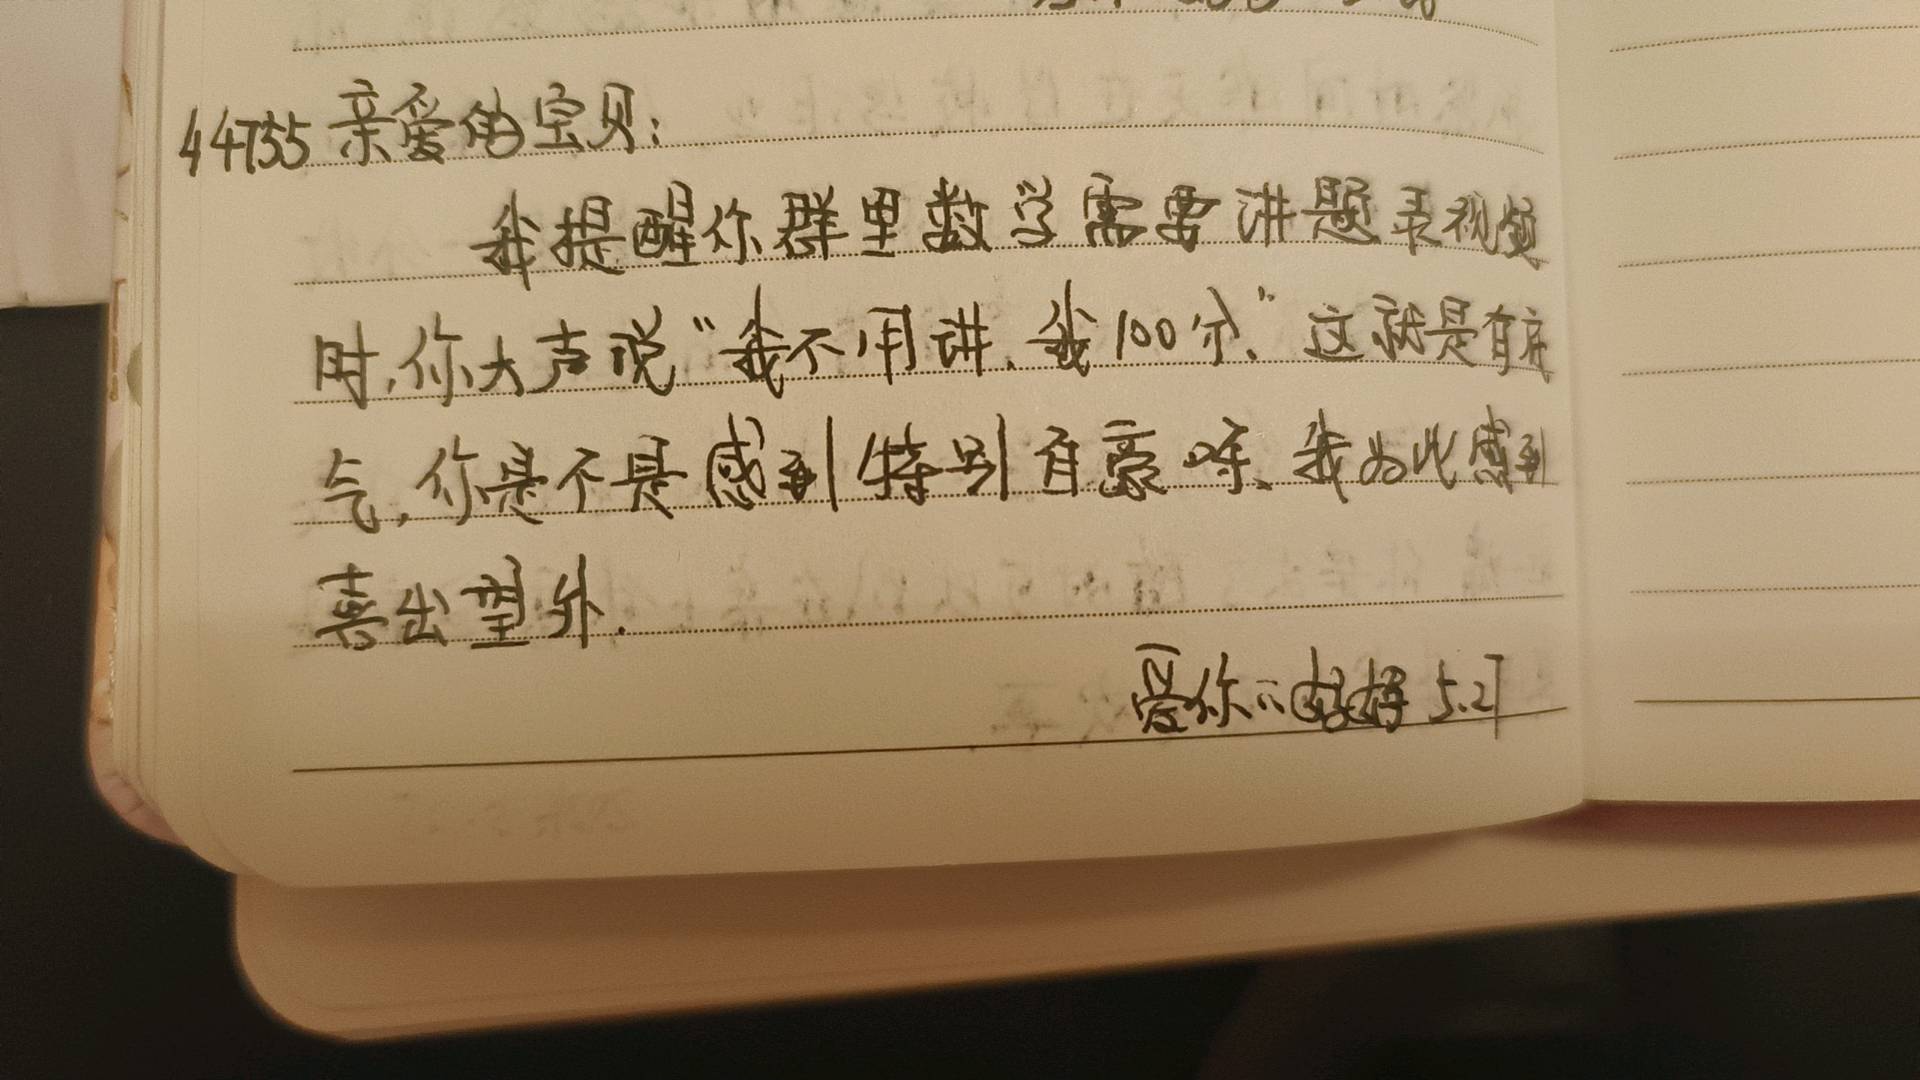 亲爱的宝贝:
我提醒你群里数学需要讲题录视频
时,你大声说“我不用讲,我100分.”这就是有底
气,你是不是感到特别自豪呀、我为此感到
喜出望外.
爱你的妈妈 5.27